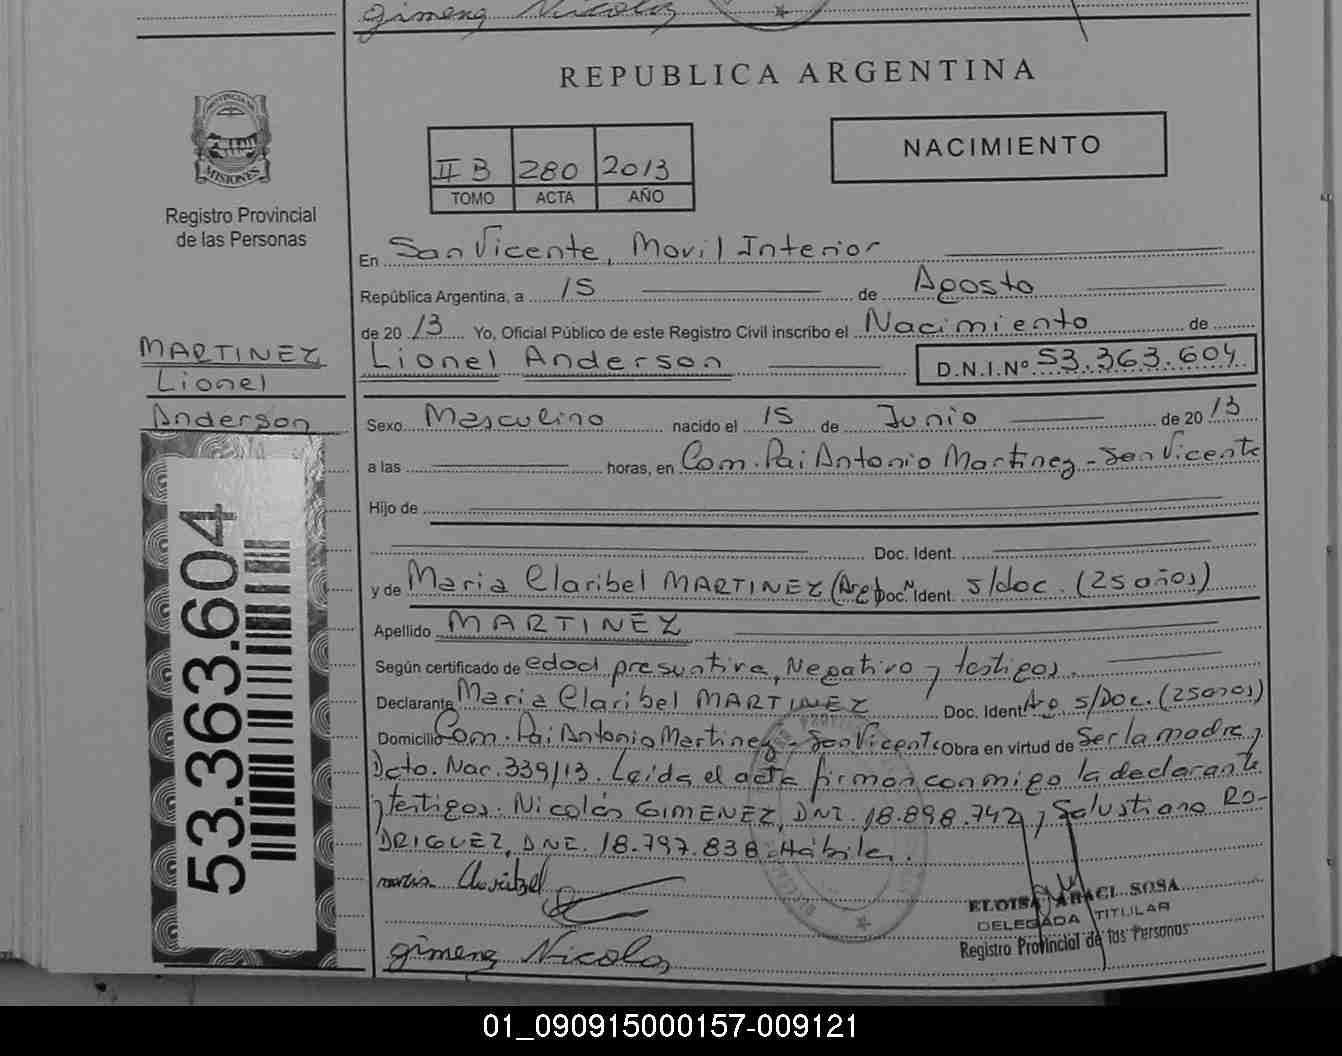 gimenez Nicolas
PROVINCIA DE
MISIONES
Registro Provincial
de las Personas
REPUBLICA ARGENTINA
II B 280 2013
TOMO ACTA AÑO
NACIMIENTO
En San Vicente, Movil Interior
República Argentina, a 15 de Agosto
de 2013 Yo, Oficial Público de este Registro Civil inscribo el Nacimiento de
Lionel Anderson D.N.I.Nº 53.363.604
MARTINEZ
Lionel
Anderson
53.363.604
Sexo Masculino nacido el 15 de Junio de 2013
a las horas, en Com. Pai Antonio Martinez - San Vicente
Hijo de
Doc. Ident.
y de Maria Claribel MARTINEZ (Arg) Doc. Ident. s/doc. (25 años)
Apellido MARTINEZ
Según certificado de edad presuntiva, Negativo y testigos.
Declarante Maria Claribel MARTINEZ Doc. Ident. Arg s/Doc. (25 años)
Domicilio Com. Pai Antonio Martinez - San Vicente Obra en virtud de Ser la madre y
Dcto. Nac. 339/13. Leida el acta firman conmigo la declarante
y testigos. Nicolás GIMENEZ, DNI. 18.898.742 y Salustiano RO-
DRIGUEZ, DNI. 18.797.838 Hábiles.
maria Claribel
gimenez Nicolas
ELOISA ABACI SOSA
DELEGADA TITULAR
Registro Provincial de las Personas
01_090915000157-009121